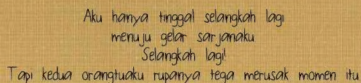 Aku hanya tinggal selangkah lagi
menuju gelar sarjanaku
Selangkah lagi!
Tapi kedua orangtuaku rupanya tega merusak momen itu